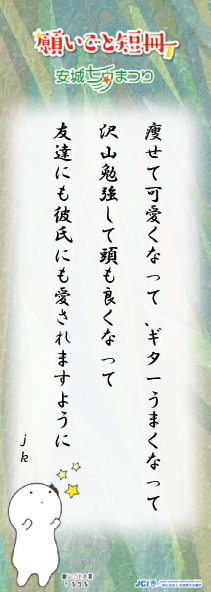 願いごと短冊
安城七夕まつり
痩せて可愛くなって、ギターうまくなって
沢山勉強して頭も良くなって
友達にも彼氏にも愛されますように
jk
JCI